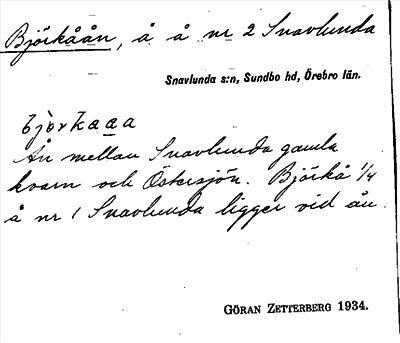 Björkåån, å å nr 2 Snavlunda
Snavlunda s:n, Sundbo hd, Örebro län.
bjørkaaa
Ån mellan Snavlunda gamla
kvarn och Östersjön. Björkå 1/4
å nr 1 Snavlunda ligger vid ån.
GÖRAN ZETTERBERG 1934.